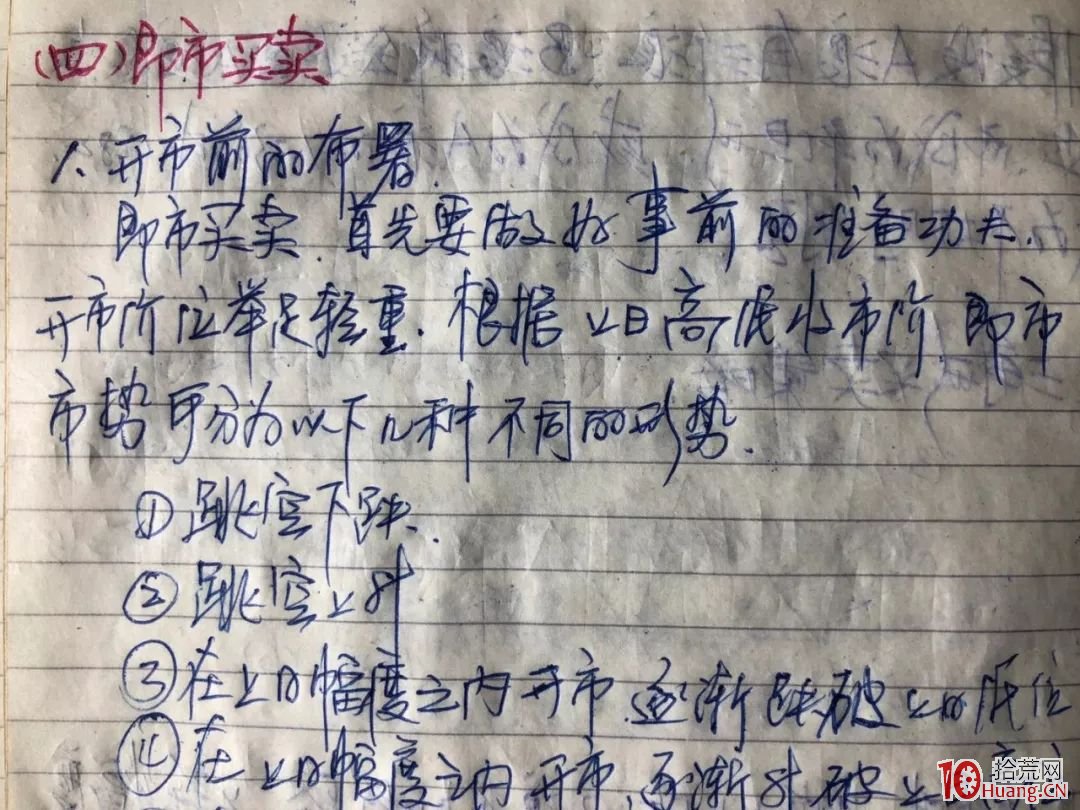 (四)即市买卖
1、开市前的布署.
即市买卖.首先要做好事前的准备功夫.
开市阶位举足轻重.根据上日高低水市阶.即市
市势可分为以下几种不同的形势.
①跳空下跌.
②跳空上升
③在上日幅度之内开市.逐渐跌破上日低位
④在上日幅度之内开市.逐渐升破上
10 拾荒网
Huang.CN